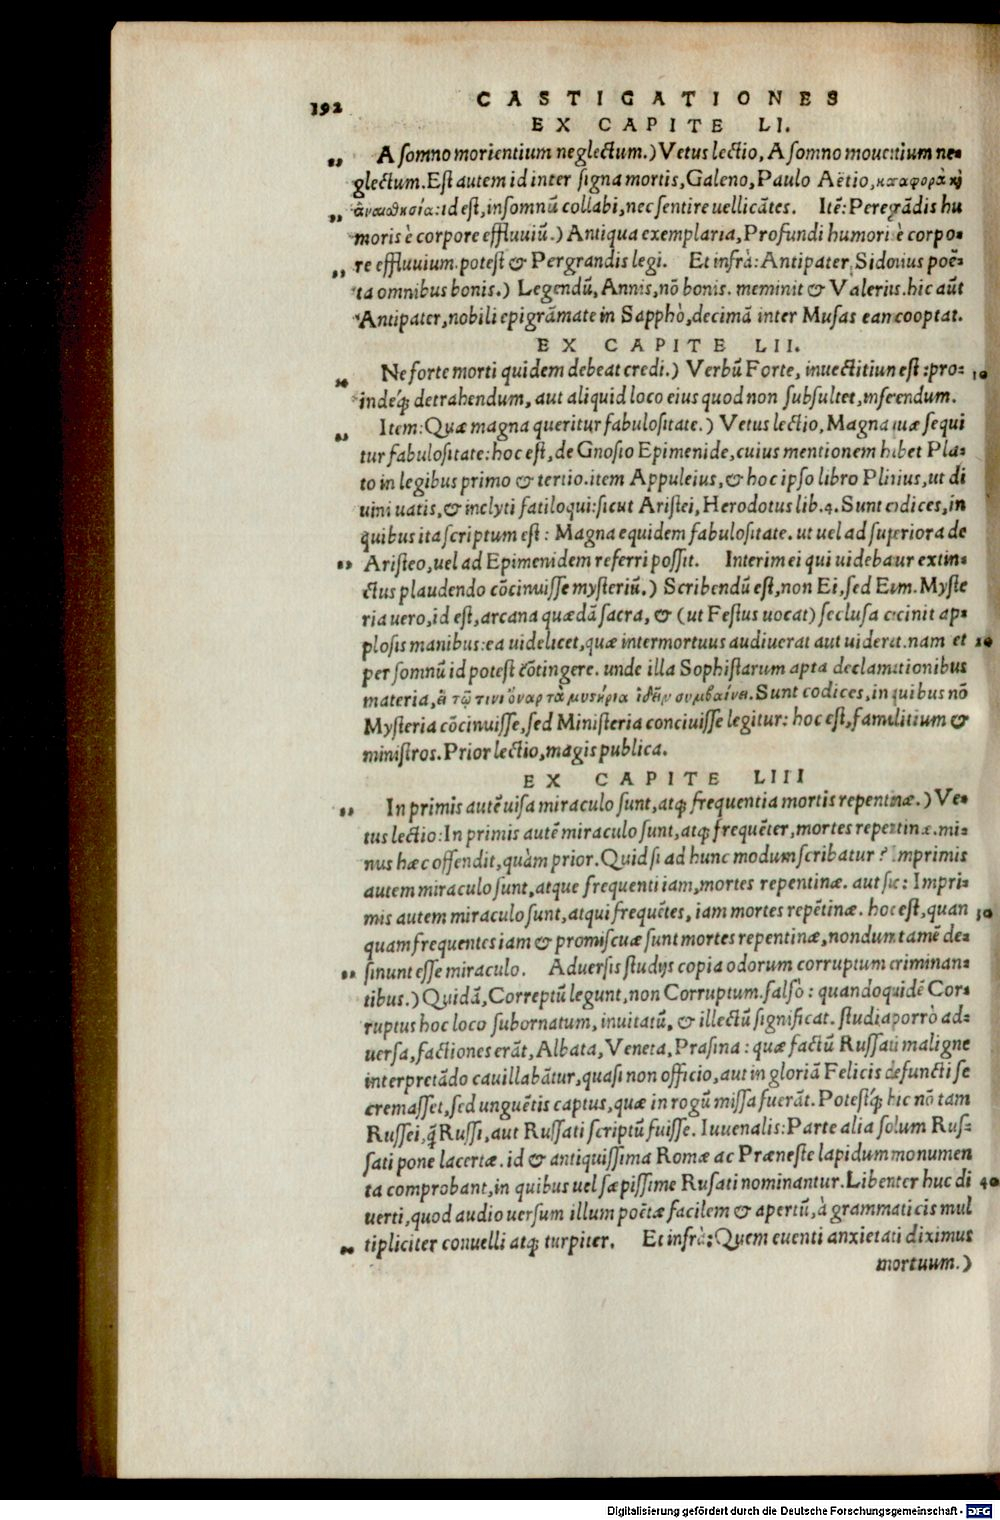 192 CASTIGATIONES
EX CAPITE LI.
„ A somno morientium neglectum.) Vetus lectio, A somno mouentium ne-
glectum. Est autem id inter signa mortis, Galeno, Paulo Aëtio, καταφορὰ κỳ
ἀναισθησία: id est, in somnū collabi, nec sentire uellicātes. Itē: Peregrādis hu
„ moris è corpore effluuiū.) Antiqua exemplaria, Profundi humoris è corpo-
re effluuium. potest & Pergrandis legi. Et infrà: Antipater Sidonius poē-
„ ta omnibus bonis.) Legendū, Annis, nō bonis. meminit & Valerius. hic aūt
Antipater, nobili epigrāmate in Sapphò, decimā inter Musas eam cooptat.
EX CAPITE LII.
„ Ne forte morti quidem debeat credi.) Verbū Forte, inuectitium est: pro- 10
indeq́; detrahendum, aut aliquid loco eius quod non subsultet, inserendum.
„ Item: Quæ magna queritur fabulositate.) Vetus lectio, Magna quæ sequi
tur fabulositate: hoc est, de Gnosio Epimenide, cuius mentionem habet Pla-
to in legibus primo & tertio. item Appuleius, & hoc ipso libro Plinius, ut di
uini uatis, & inclyti fatiloqui: sicut Aristei, Herodotus lib. 4. Sunt codices, in
quibus ita scriptum est: Magna equidem fabulositate. ut uel ad superiora de
„ Aristeo, uel ad Epimenidem referri possit. Interim ei qui uidebatur extin-
ctus plaudendo cōcinuisse mysteriū.) Scribendū est, non Ei, sed Eum. Myste
ria uero, id est, arcana quædā sacra, & (ut Festus uocat) seclusa cecinit ap-
plosis manibus: ea uidelicet, quæ intermortuus audiuerat aut uiderat. nam et 20
per somnū id potest cōtingere. unde illa Sophistarum apta declamationibus
materia, εἴ τῳ τινι ὄναρ τὰ μυστήρια ἰδεῖν συμβαίνει. Sunt codices, in quibus nō
Mysteria cōcinuisse, sed Ministeria conciuisse legitur: hoc est, famulitium &
ministros. Prior lectio, magis publica.
EX CAPITE LIII
„ In primis autē uisa miraculo sunt, atq; frequentia mortis repentinæ.) Ve-
tus lectio: In primis autē miraculo sunt, atq; frequēter, mortes repentinæ. mi-
nus hæc offendit, quàm prior. Quid si ad hunc modum scribatur? Imprimis
autem miraculo sunt, atque frequenti iam, mortes repentinæ. aut sic: Impri-
mis autem miraculo sunt, atqui frequētes, iam mortes repētinæ. hoc est, quan 30
quam frequentes iam & promiscuæ sunt mortes repentinæ, nondum tamē de-
„ sinunt esse miraculo. Aduersis studijs copia odorum corruptum criminan-
tibus.) Quidā, Correptū legunt, non Corruptum. falsò: quandoquidē Cor-
ruptus hoc loco subornatum, inuitatū, & illectū significat. studia porrò ad-
uersa, factiones erāt, Albata, Veneta, Prasina: quæ factū Russati maligne
interpretādo cauillabātur, quasi non officio, aut in gloriā Felicis defuncti se
cremasset, sed unguētis captus, quæ in rogū missa fuerāt. Potestq́; hic nō tam
Russei, q̄ Russi, aut Russati scriptū fuisse. Iuuenalis: Parte alia solum Rus-
sati pone lacertæ. id & antiquissima Romæ ac Præneste lapidum monumen
ta comprobant, in quibus uel sæpissime Rusati nominantur. Libenter huc di 40
uerti, quod audio uersum illum poëtæ facilem & apertū, à grammaticis mul
„ tipliciter conuelli atq; turpiter. Et infrà: Quem euenti anxietati diximus
mortuum.)
Digitalisierung gefördert durch die Deutsche Forschungsgemeinschaft - DFG